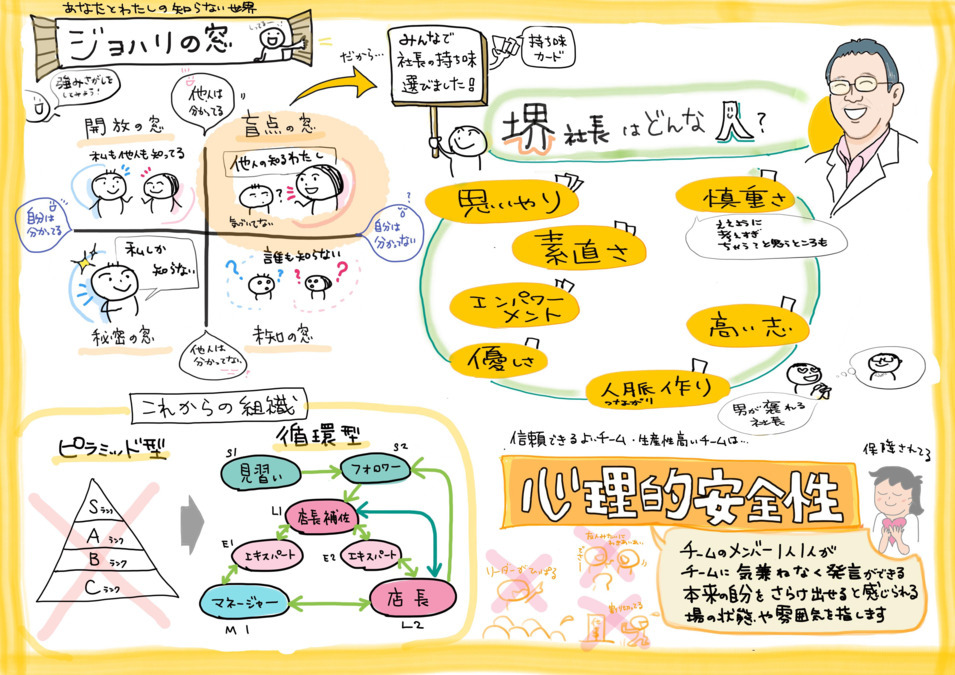 あなたとわたしの知らない世界
ジョハリの窓
強みさがしを
してみよう!
他人は
分かってる
開放の窓
私も他人も知ってる
盲点の窓
他人の知るわたし
気づいてない
自分は
分かってる
自分は
分かってない
私しか
知らない
秘密の窓
誰も知らない
未知の窓
他人は
分かってない
だから…
みんなで
社長の持ち味
選びました!
持ち味
カード
堺社長はどんな人?
思いやり
慎重さ
考えすぎ
ちがう?と思うところも
素直さ
エンパワー
メント
高い志
優しさ
人脈作り
つながり
男が褒れる
社長
これからの組織
ピラミッド型
Sランク
Aランク
Bランク
Cランク
循環型
S1
見習い
S2
フォロワー
L1
店長補佐
E1
エキスパート
E2
エキスパート
マネージャー
M1
店長
L2
信頼できるよいチーム・生産性高いチームは…
心理的安全性
保障されてる
リーダーがひっぱる
チームのメンバー1人1人が
チームに気兼ねなく発言ができる
本来の自分をさらけ出せると感じられる
場の状態や雰囲気を指します